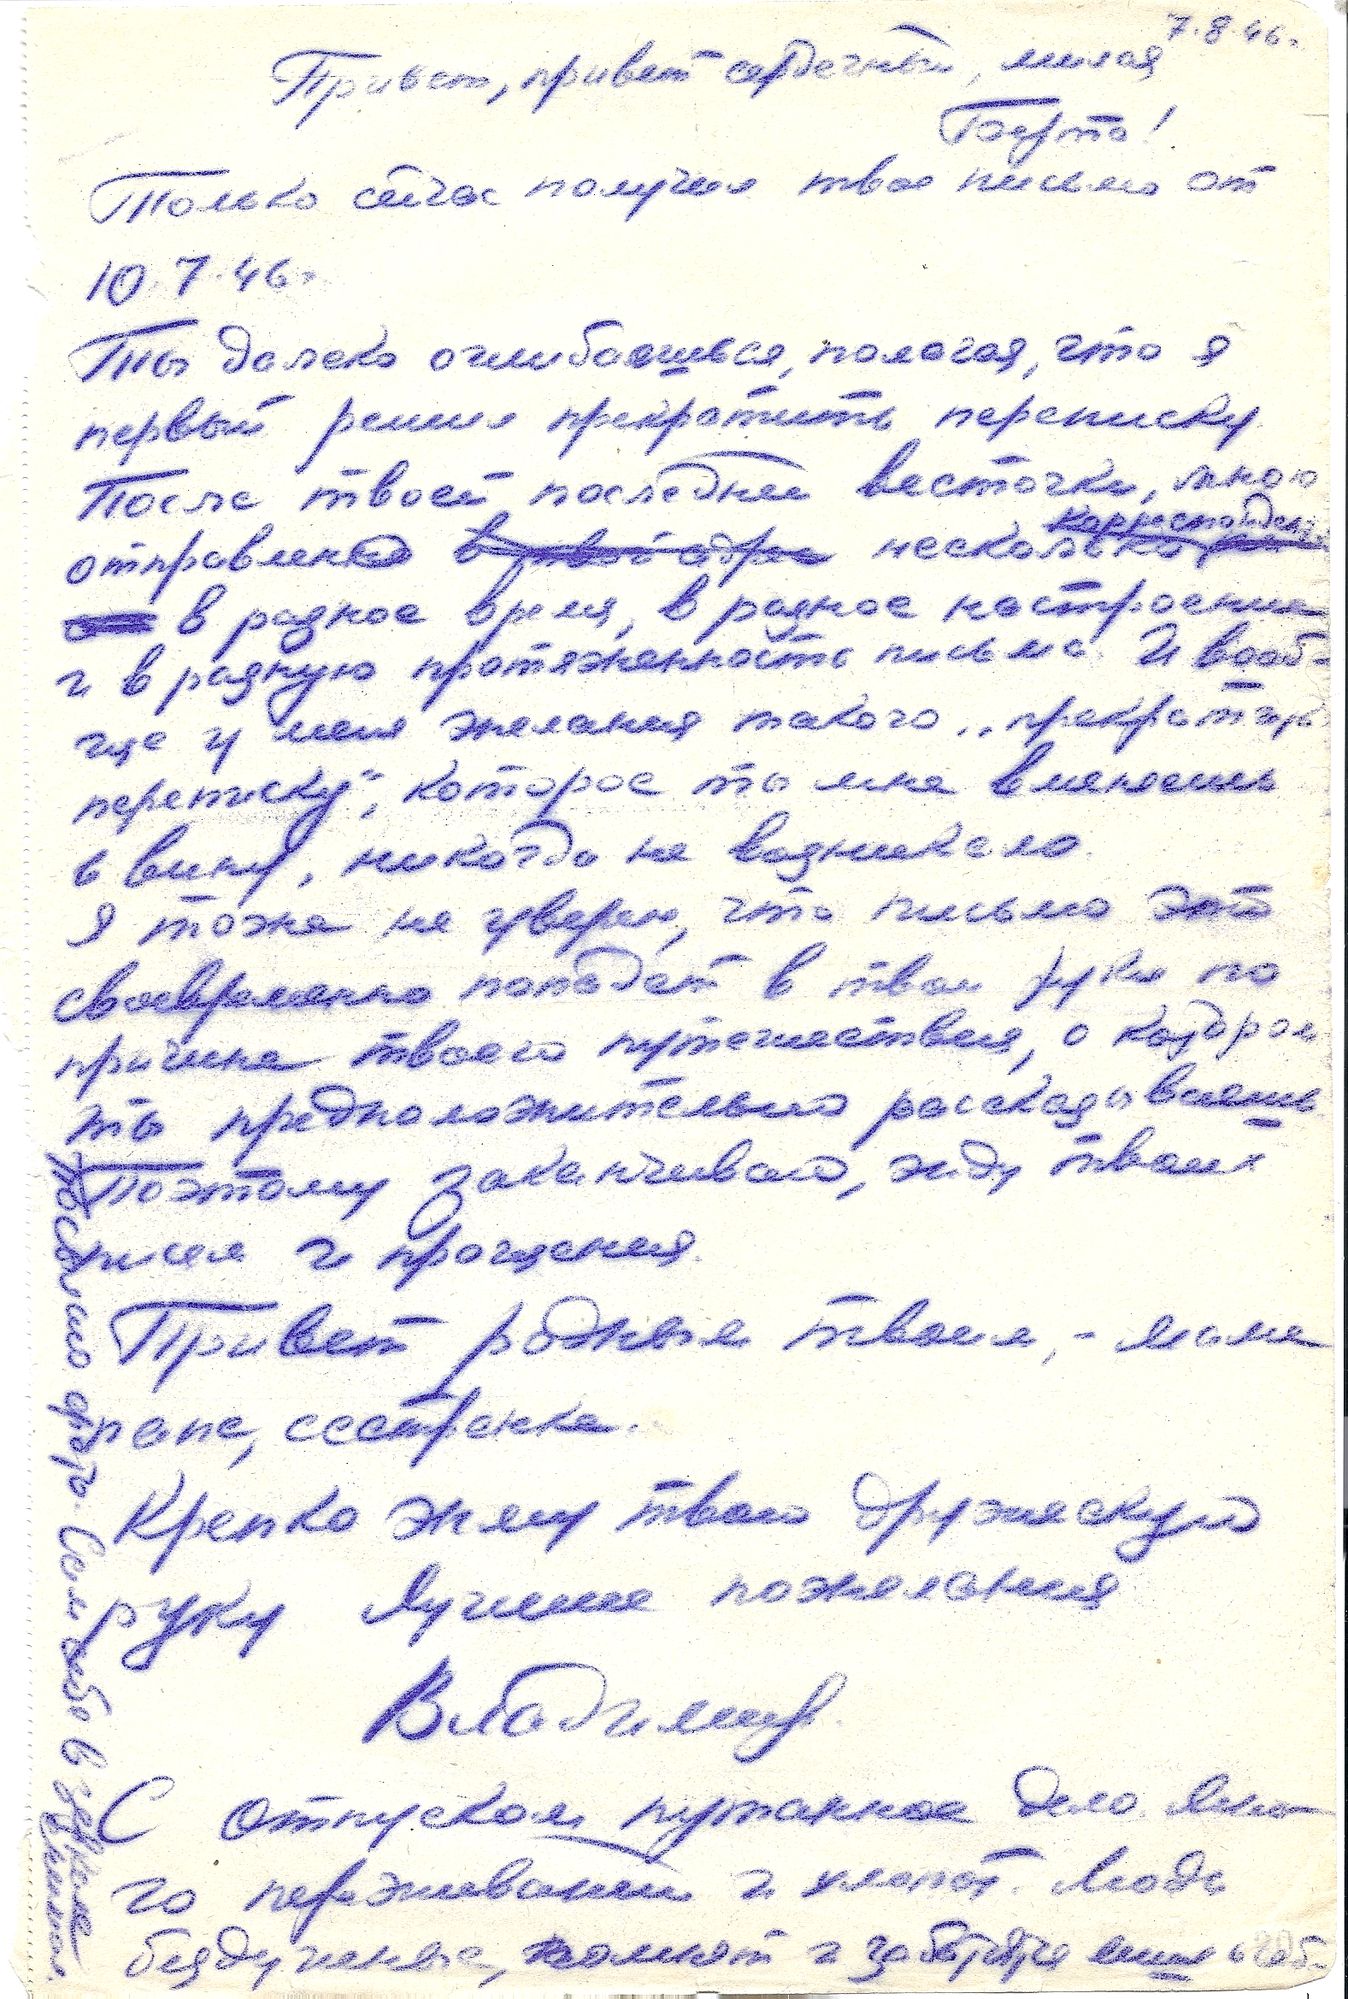 7.8.46г.
Привет, привет сердечный, милая
Берта!
Только сейчас получил твое письмо от
10.7.46г.
Ты далеко ошибаешься, полагая, что я
первый решил прекратить переписку.
После твоей последней весточки, мною
отправлено в твой адрес несколько корреспонденций
в разное время, в разное настроение
и в разную протяженность письма. И вооб-
ще у меня желания такого „прекратить
переписку“, которое ты мне вменяешь
в вину, никогда не возникало.
Я тоже не уверен, что письмо это
своевременно попадет в твои руки по
причине твоего путешествия, о котором
ты предположительно рассказываешь.
Поэтому заканчиваю, жду твоих
писем и прощения.
Привет родным твоим, - маме
папе, сестренке.
Крепко жму твою дружескую
руку Лучшие пожелания
Владимир.
С отпуском путанное дело. Мно-
го переживаний и хлопот. Люди
бездушные, помнят и заботятся лишь о себ-
Посылаю фото. Сам либо в